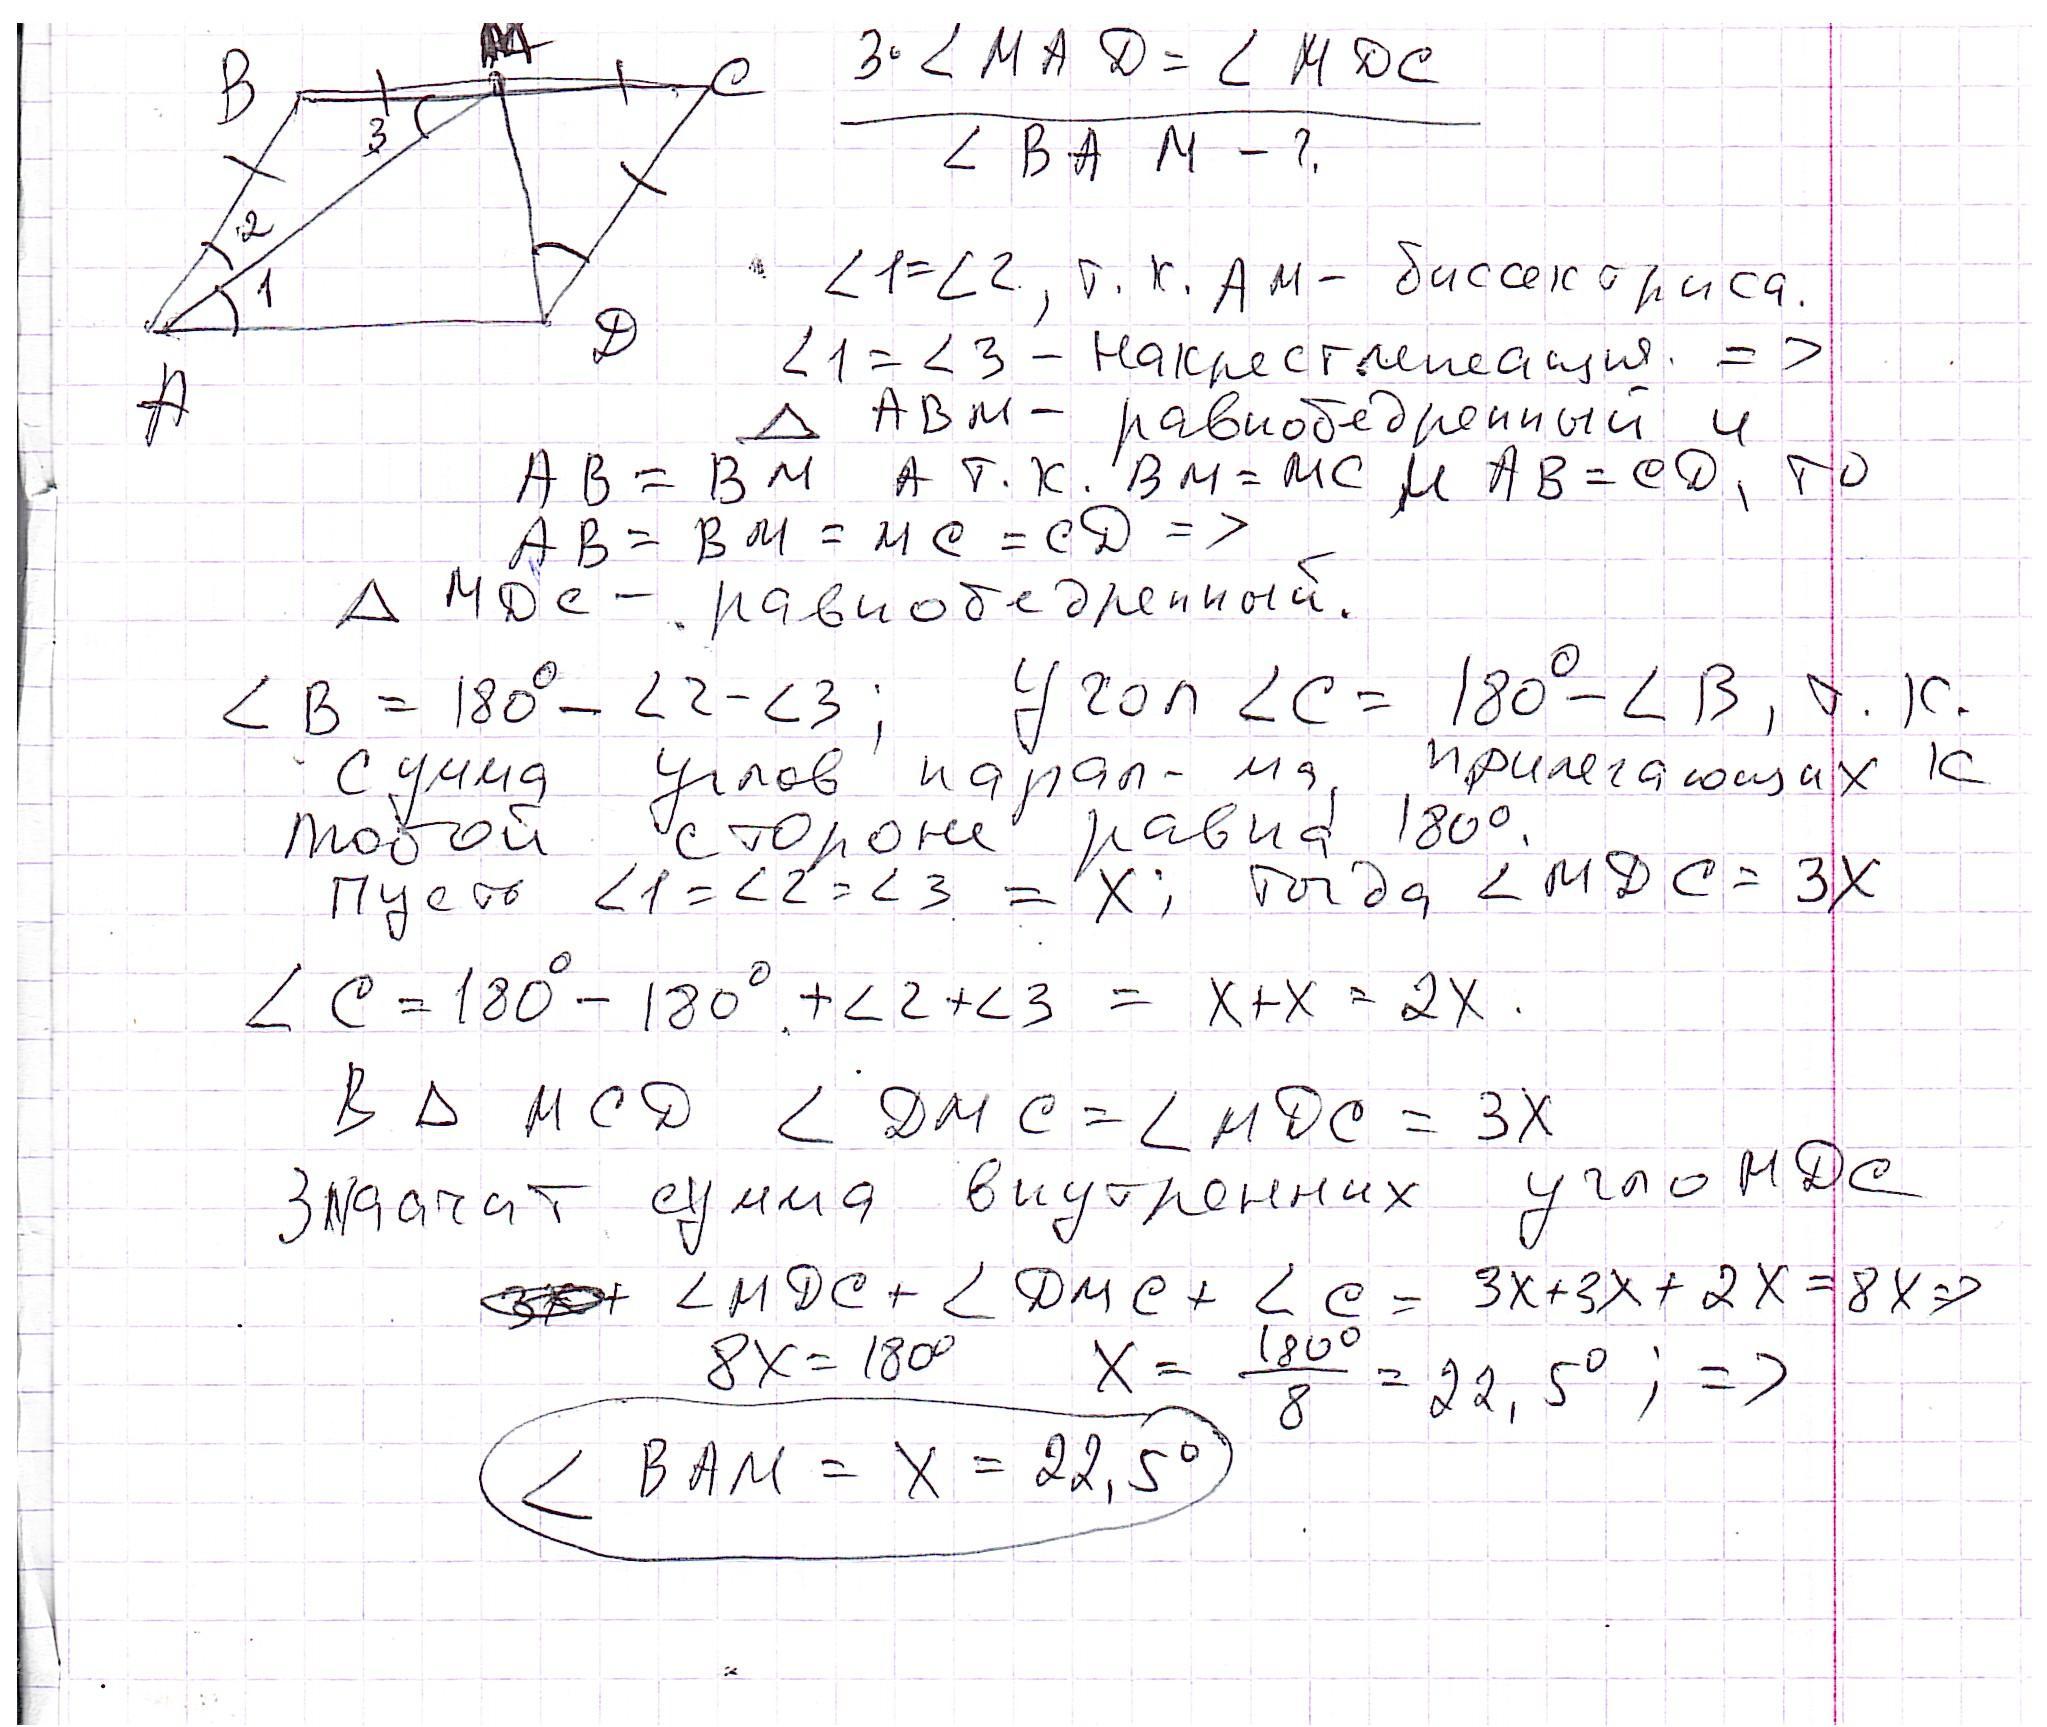 B M C
3·∠MAD=∠MDC
3
∠BAM-?
2
1
∠1=∠2, т.к. AM- биссектриса.
D
∠1=∠3 - накрестлежащия. =>
A
△ ABM - равнобедренный и
AB = BM А т.к. BM=MC и AB=CD, то
AB = BM = MC = CD =>
△ MDC - равнобедренный.
∠B = 180° - ∠2-∠3; Угол ∠C = 180° - ∠B, т.к.
сумма углов парал-ма, прилегающих к
любой стороне равна 180°.
Пусть ∠1=∠2=∠3 = X; тогда ∠MDC = 3X
∠C = 180° - 180° + ∠2+∠3 = X+X = 2X.
В △ MCD ∠DMC = ∠MDC = 3X
Значат сумма внутренних угло MDC
+ ∠MDC + ∠DMC + ∠C = 3X+3X+2X = 8X =>
8X = 180° X = 180°/8 = 22,5°; =>
∠BAM = X = 22,5°